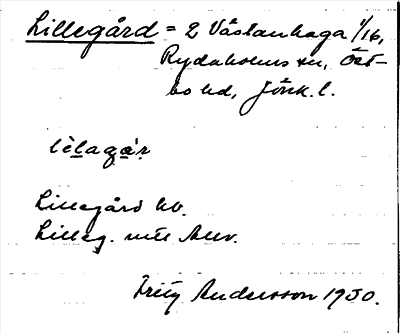 Lillegård = 2 Västanhaga 1/16,
Rydaholms sn, Öst-
bo hd, Jönk. l.
lèlagár
Lillegård kb.
Lilleg.
Fritz Andersson 1950.